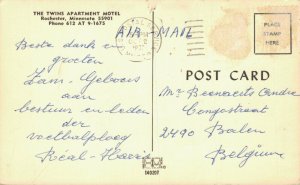 THE TWINS APARTMENT MOTEL
Rochester, Minnesota 55901
Phone 612 AT 9-1675
AIR MAIL
PLACE
STAMP
HERE
Beste dank en
groeten
Jam-Geboers
aan
bestuur en leden
der
voetbalploeg
Real-Heeren
POST CARD
Mr Beenaerts Andre
straat
2490 Balen
Belgium
140207